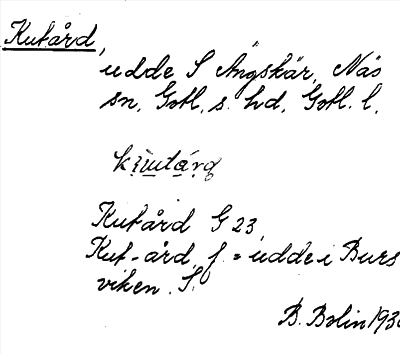 Kutård,
udde S Ängskär, Näs
sn, Gotl. s. hd, Gotl. l.
Kutård G 23,
Kut-ård, f. = udde i Burs
viken. S.
B. Bolin 193